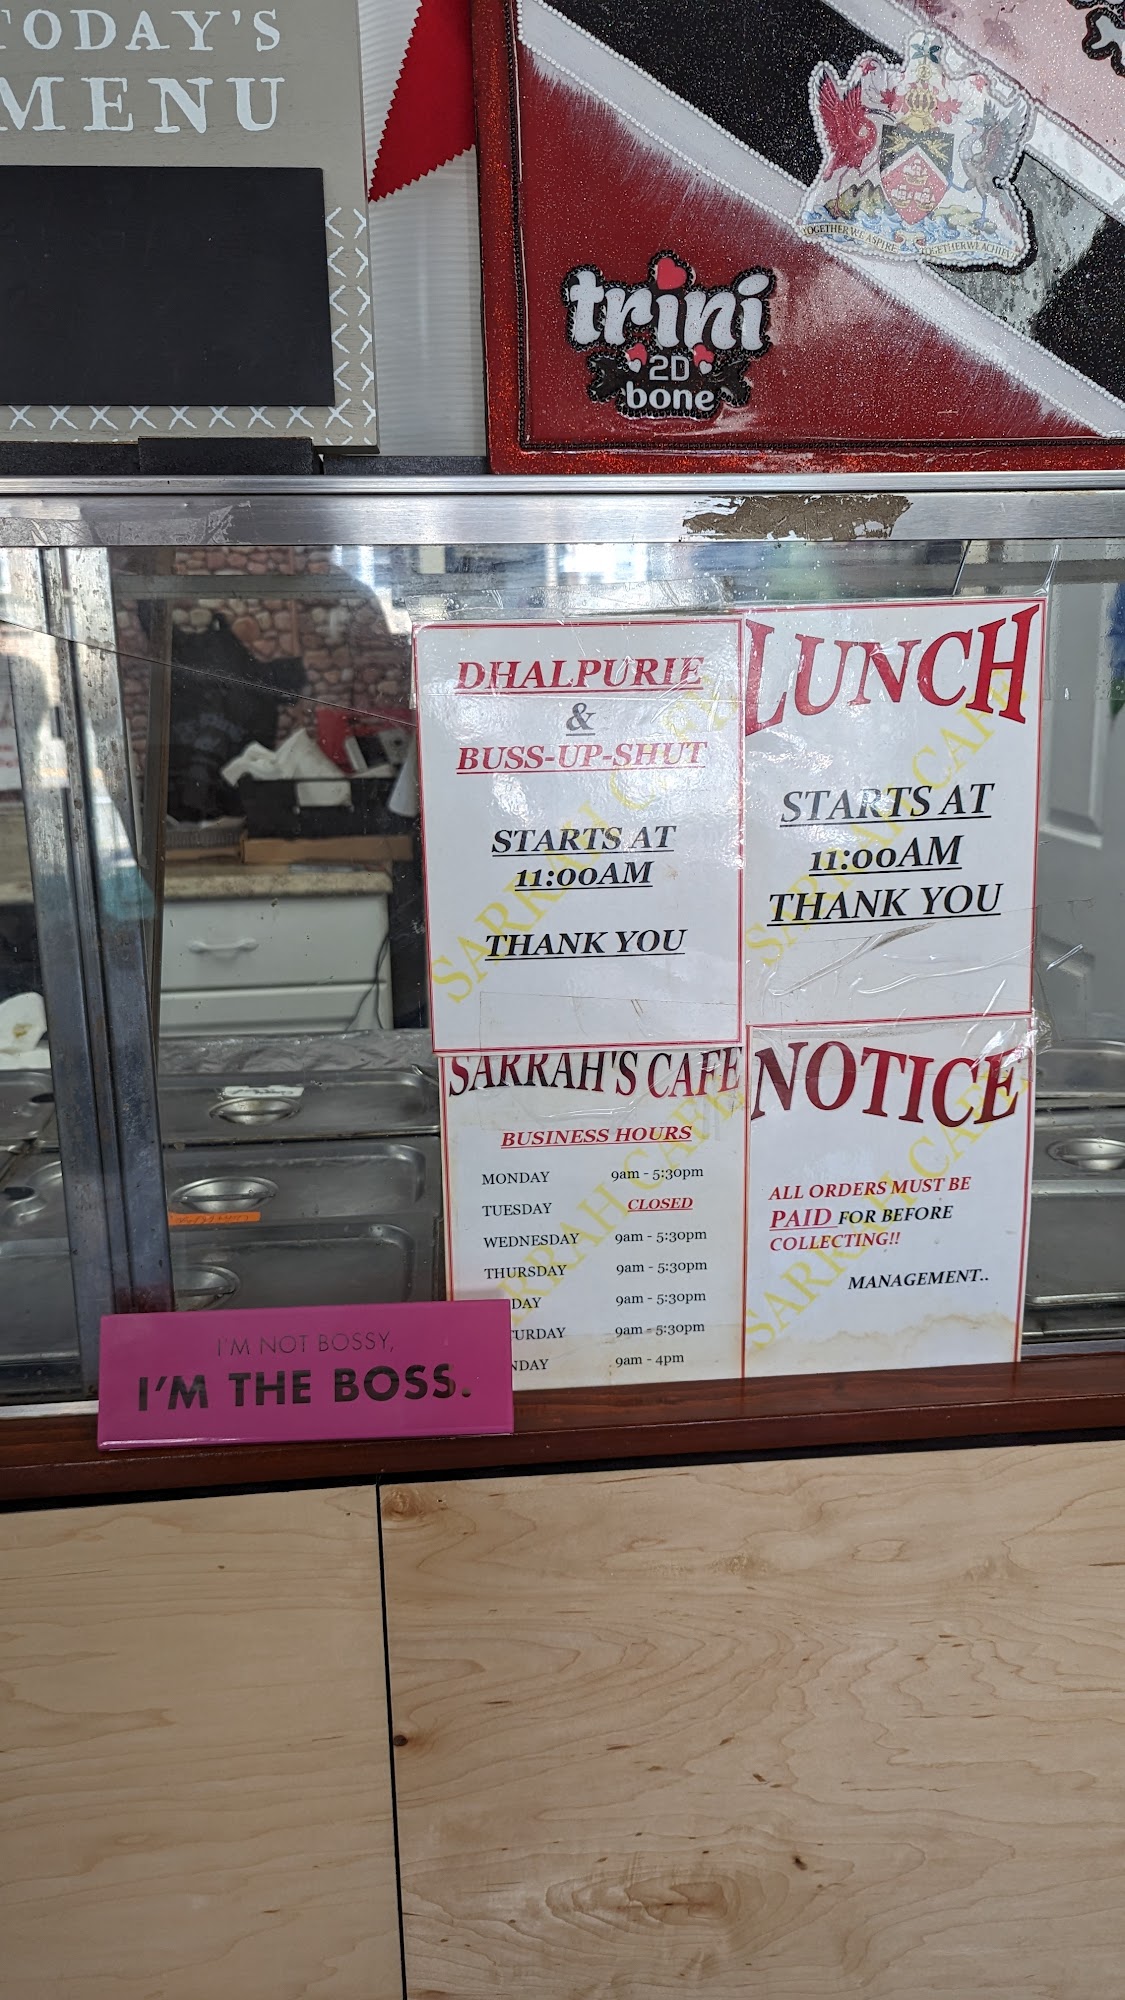 TODAY'S
MENU
TOGETHER WE ASPIRE TOGETHER WE ACHIEVE
trini
2D
bone
DHALPURIE
&
BUSS-UP-SHUT
STARTS AT
11:00AM
THANK YOU
SARRAH CAFE
LUNCH
STARTS AT
11:00AM
THANK YOU
SARRAH CAFE
SARRAH'S CAFE
BUSINESS HOURS
MONDAY 9am - 5:30pm
TUESDAY CLOSED
WEDNESDAY 9am - 5:30pm
THURSDAY 9am - 5:30pm
DAY 9am - 5:30pm
TURDAY 9am - 5:30pm
NDAY 9am - 4pm
SARRAH CAFE
NOTICE
ALL ORDERS MUST BE
PAID FOR BEFORE
COLLECTING!!
MANAGEMENT..
SARRAH CAFE
I'M NOT BOSSY,
I'M THE BOSS.